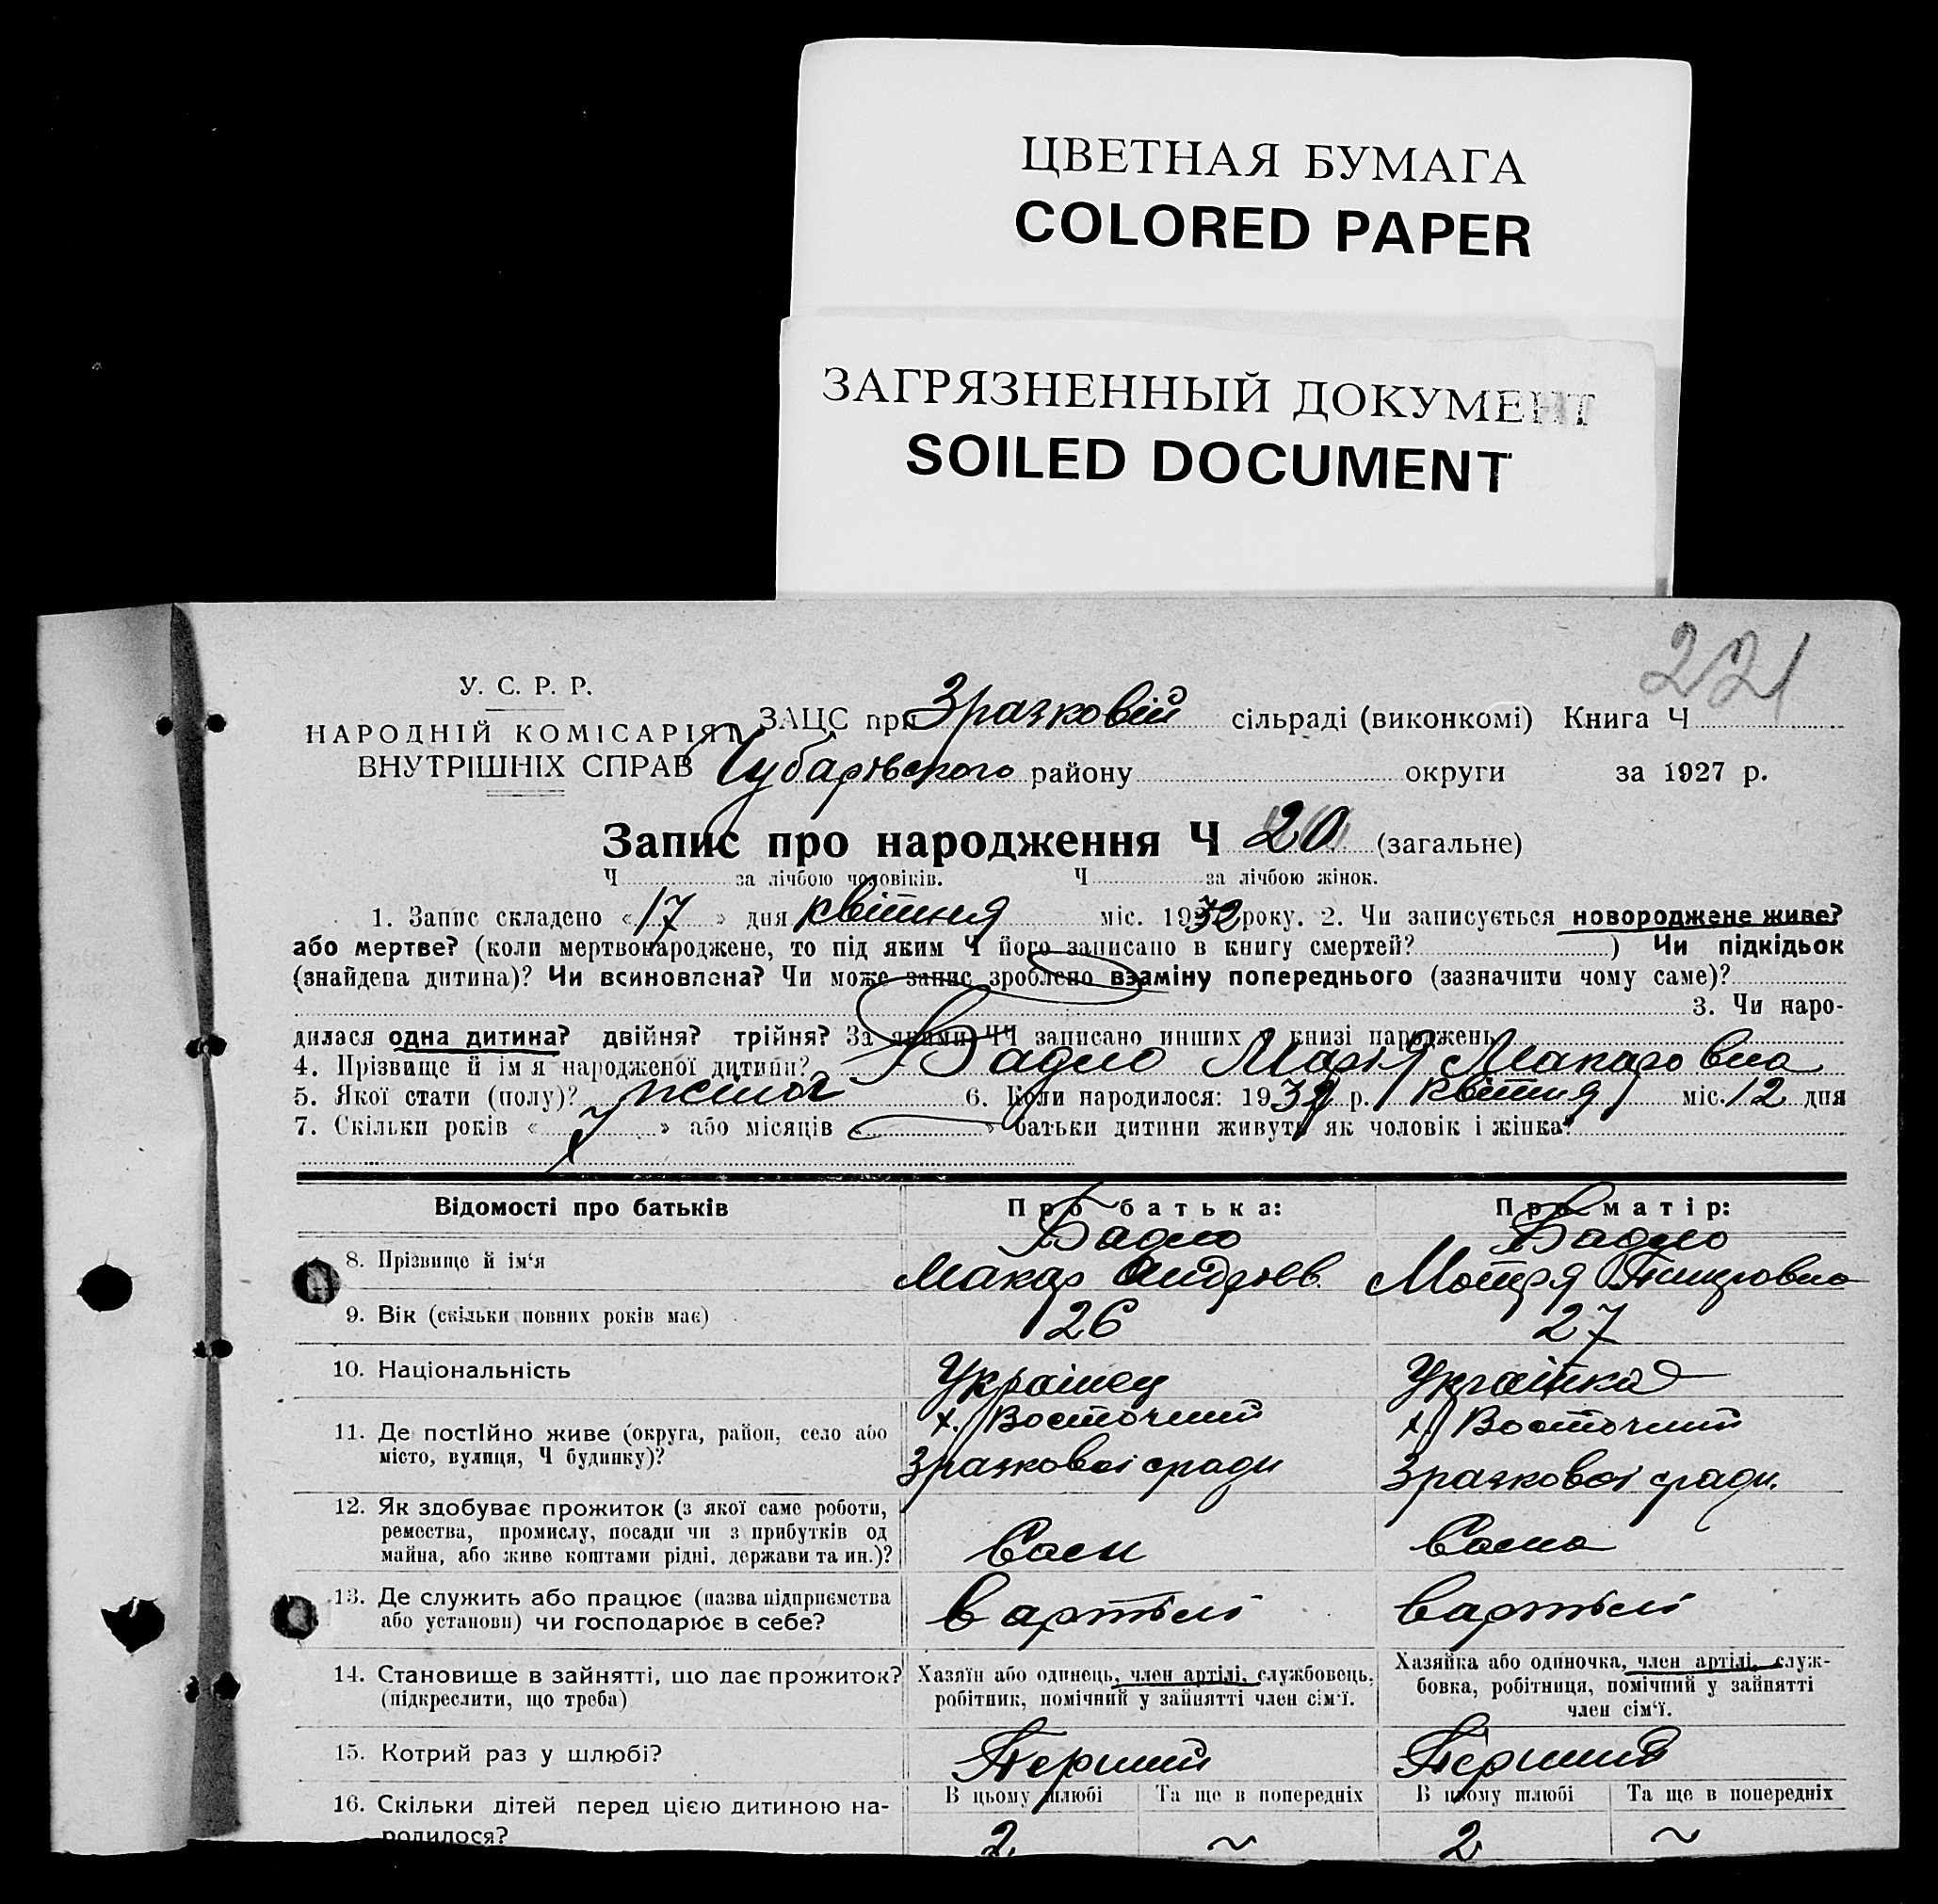 ЦВЕТНАЯ БУМАГА
COLORED PAPER
ЗАГРЯЗНЕННЫЙ ДОКУМЕНТ
SOILED DOCUMENT
221
У. С. Р. Р.
НАРОДНІЙ КОМІСАРІЯТ
ВНУТРІШНІХ СПРАВ
ЗАЦС при Зразковій сільраді (виконкомі) Книга Ч
Чубарівского району округи за 1927 р.
Запис про народження Ч 20 (загальне)
Ч за лічбою чоловіків. Ч за лічбою жінок.
1. Запис складено « 17 » дня квітня міс. 1932 року. 2. Чи записується новороджене живе?
або мертве? (коли мертвонароджене, то під яким Ч його записано в книгу смертей? ) Чи підкідьок
(знайдена дитина)? Чи всиновлена? Чи може запис зроблено взаміну попереднього (зазначити чому саме)?
3. Чи наро-
дилася одна дитина? двійня? трійня? За якими ЧЧ записано инших в книзі народжень
4. Прізвище й ім'я народженої дитини? Бадло Марія Макаровна
5. Якої стати (полу)? жіноч 6. Коли народилося: 1932 р. квітня міс. 12 дня
7. Скільки років « 7 » або місяців « » батьки дитини живуть як чоловік і жінка?
Відомості про батьків
Про батька:
Про матір:
8. Прізвище й ім'я
Бадло
Макар Андрієв.
Бадло
Мотря
9. Вік (скільки повних років має)
26
27
10. Національність
Українец
Українка
11. Де постійно живе (округа, район, село або
місто, вулиця, Ч будинку)?
х. Восточний
Зразковоі сради
х. Восточний
Зразковоі сради.
12. Як здобуває прожиток (з якої саме роботи,
ремества, промислу, посади чи з прибутків од
майна, або живе коштами рідні, держави та ин.)?
13. Де служить або працює (назва підприємства
або установи) чи господарює в себе?
в артілі
в артілі
14. Становище в зайнятті, що дає прожиток?
(підкреслити, що треба)
Хазяїн або одинець, член артілі, службовець,
робітник, помічний у зайнятті член сім'ї.
Хазяйка або одиночка, член артілі, служ-
бовка, робітниця, помічний у зайнятті
член сім'ї.
15. Котрий раз у шлюбі?
Перший
Перший
16. Скільки дітей перед цією дитиною на-
родилося?
В цьому шлюбі
Та ще в попередніх
В цьому шлюбі
Та ще в попередніх
2
~
2
~